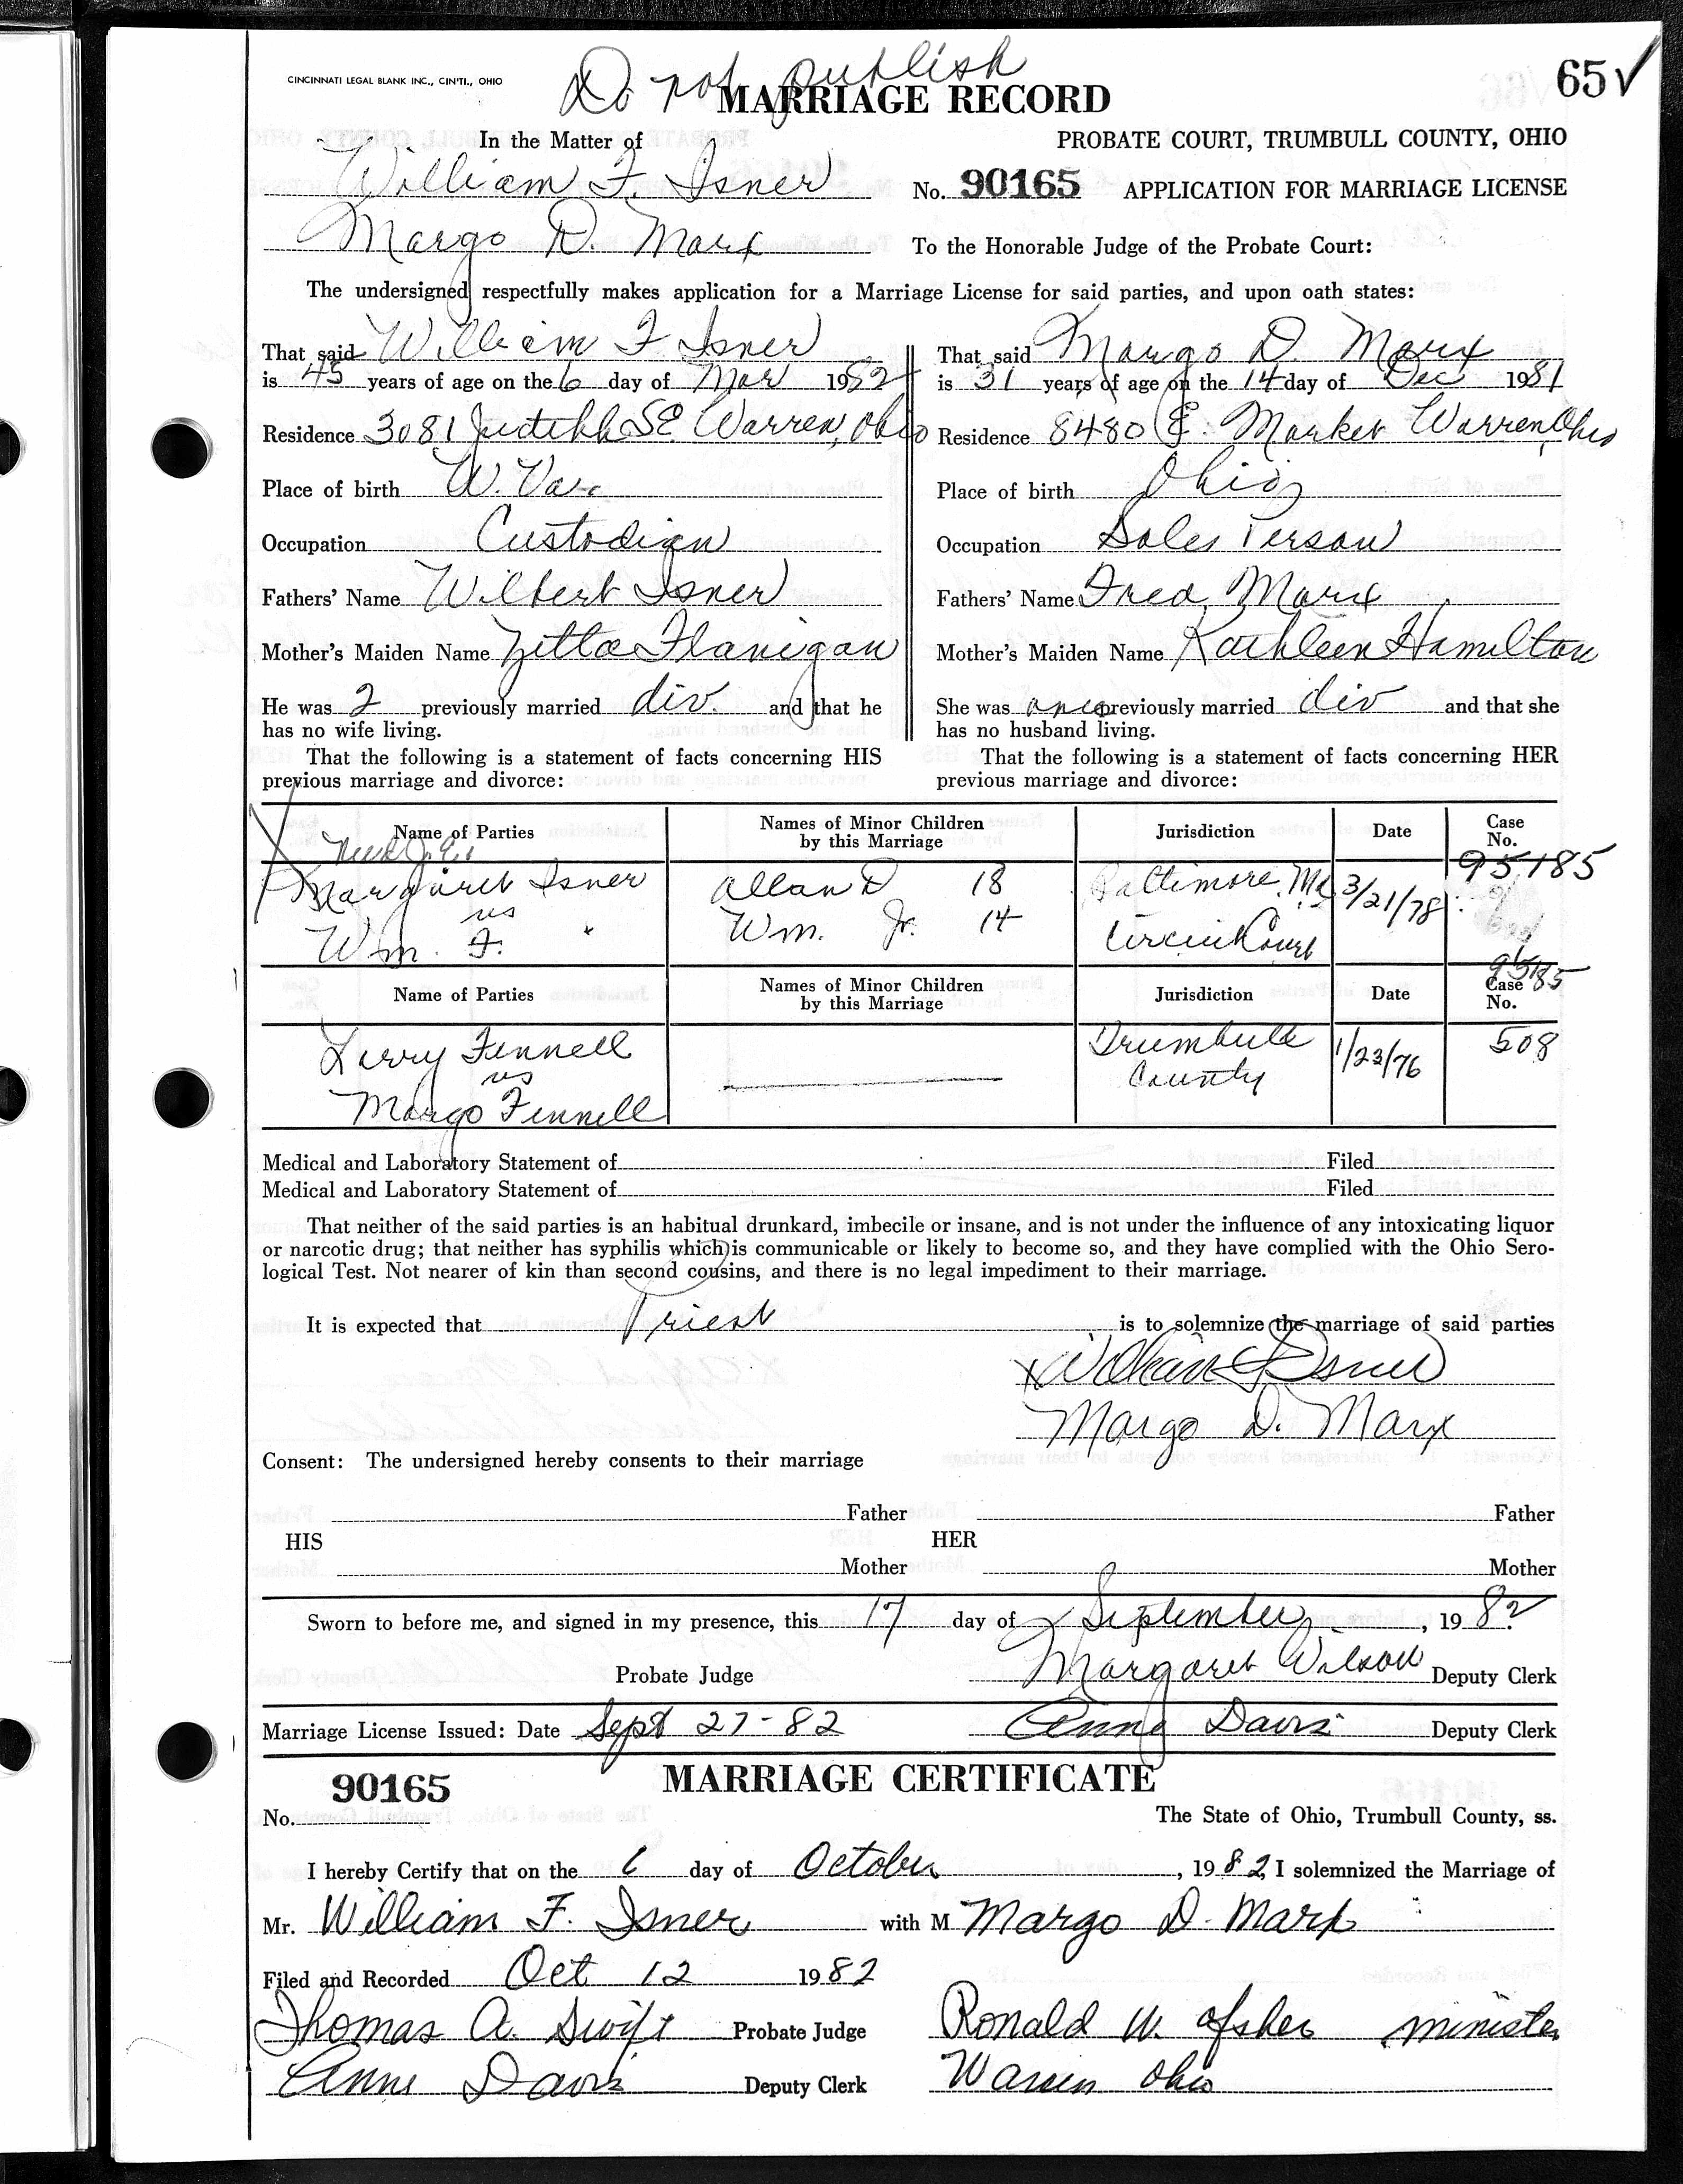 Do not publish
CINCINNATI LEGAL BLANK INC., CIN'TI., OHIO
MARRIAGE RECORD
65 ✓
In the Matter of
PROBATE COURT, TRUMBULL COUNTY, OHIO
William F. Isner
No. 90165 APPLICATION FOR MARRIAGE LICENSE
Margo D. Marx
To the Honorable Judge of the Probate Court:
The undersigned respectfully makes application for a Marriage License for said parties, and upon oath states:
That said William F Isner
is 45 years of age on the 6 day of Mar 1982
Residence 3081 SE Warren, Ohio
Place of birth W. Va.
Occupation Custodian
Fathers' Name Wilbert Isner
Mother's Maiden Name Zitta Flanigan
He was 2 previously married div. and that he
has no wife living.
That the following is a statement of facts concerning HIS
previous marriage and divorce:
That said Margo D. Marx
is 31 years of age on the 14 day of Dec 1981
Residence 8480 E. Market Warren, Ohio
Place of birth Ohio
Occupation Sales Person
Fathers' Name Fred Marx
Mother's Maiden Name Kathleen Hamilton
She was once previously married div and that she
has no husband living.
That the following is a statement of facts concerning HER
previous marriage and divorce:
Name of Parties Names of Minor Children by this Marriage Jurisdiction Date Case No.
95185
Margaret Isner Allan D 18 Baltimore, Md 3/21/78
vs
Wm. F. " Wm. Jr. 14 Circuit Court
95185
Name of Parties Names of Minor Children by this Marriage Jurisdiction Date Case No.
Larry Fennell Trumbull 1/23/76 508
vs County
Margo Fennell
Medical and Laboratory Statement of Filed
Medical and Laboratory Statement of Filed
That neither of the said parties is an habitual drunkard, imbecile or insane, and is not under the influence of any intoxicating liquor
or narcotic drug; that neither has syphilis which is communicable or likely to become so, and they have complied with the Ohio Sero-
logical Test. Not nearer of kin than second cousins, and there is no legal impediment to their marriage.
It is expected that Priest is to solemnize the marriage of said parties
X William F Isner
Margo D. Marx
Consent: The undersigned hereby consents to their marriage
Father Father
HIS HER
Mother Mother
Sworn to before me, and signed in my presence, this 17 day of September, 1982.
Probate Judge Margaret Wilson Deputy Clerk
Marriage License Issued: Date Sept 27-82 Anne Davis Deputy Clerk
90165 MARRIAGE CERTIFICATE
No. The State of Ohio, Trumbull County, ss.
I hereby Certify that on the 6 day of October, 1982, I solemnized the Marriage of
Mr. William F. Isner with M Margo D. Marx
Filed and Recorded Oct 12 1982
Thomas A. Swift Probate Judge Ronald W. minister
Anne Davis Deputy Clerk Warren Ohio